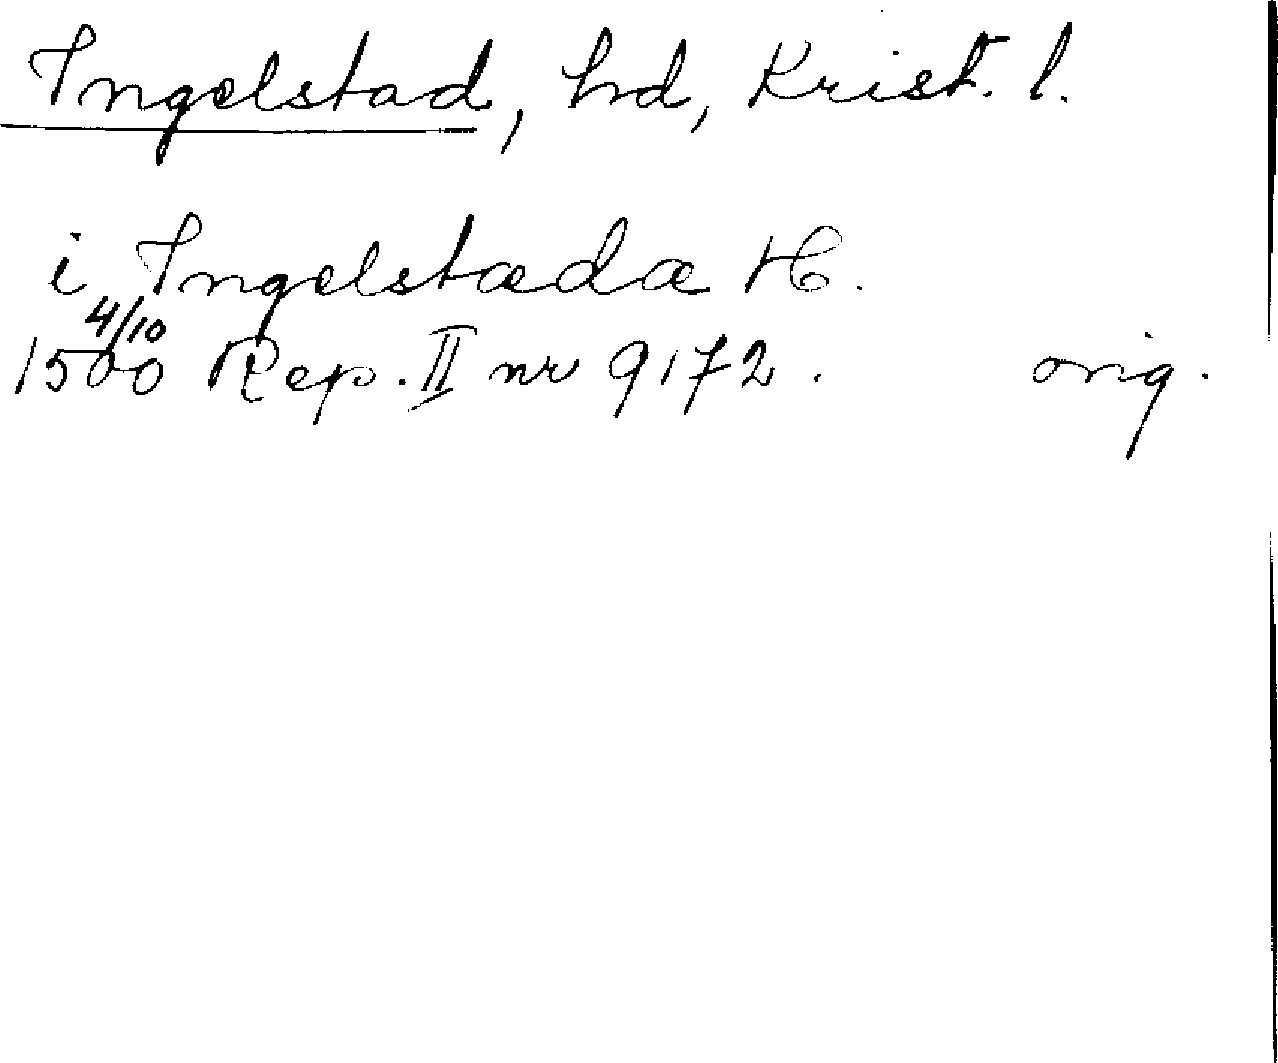 Ingelstad, hd, Krist. l.
i Ingelstada H.
1500 4/10 Rep. II nr 9172. orig.